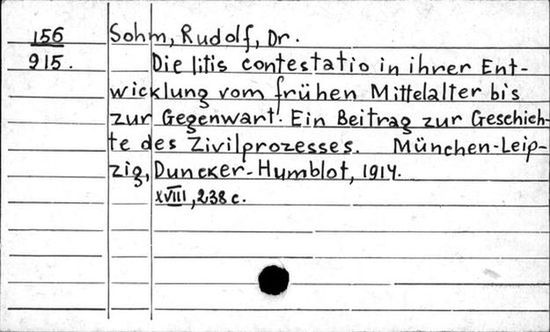 156 Sohm, Rudolf, Dr.
915. Die litis contestatio in ihrer Ent-
wicklung vom frühen Mittelalter bis
zur Gegenwart. Ein Beitrag zur Geschich-
te des Zivilprozesses. München-Leip-
zig, Duncker-Humblot, 1914.
XVIII, 238 c.